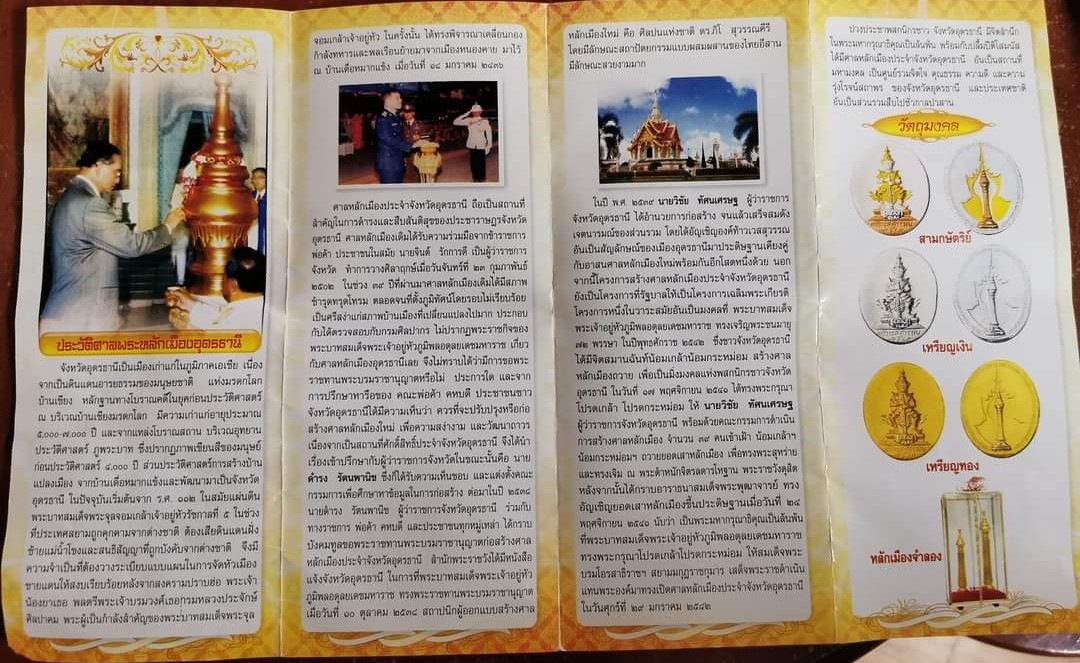 ประวัติศาลพระหลักเมืองอุดรธานี
จังหวัดอุดรธานีเป็นเมืองเก่าแก่ในภูมิภาคเอเชีย เนื่อง
จากเป็นดินแดนอารยธรรมของมนุษยชาติ แห่งมรดกโลก
บ้านเชียง หลักฐานทางโบราณคดีในยุคก่อนประวัติศาสตร์
ณ บริเวณบ้านเชียงมรดกโลก มีความเก่าแก่อายุประมาณ
๕,๐๐๐-๗,๐๐๐ ปี และจากแหล่งโบราณสถาน บริเวณอุทยาน
ประวัติศาสตร์ ภูพระบาท ซึ่งปรากฏภาพเขียนสีของมนุษย์
ก่อนประวัติศาสตร์ ๔,๐๐๐ ปี ส่วนประวัติศาสตร์การสร้างบ้าน
แปลงเมือง จากบ้านเดื่อหมากแข้งและพัฒนามาเป็นจังหวัด
อุดรธานี ในปัจจุบันเริ่มต้นจาก ร.ศ. ๑๑๒ ในสมัยแผ่นดิน
พระบาทสมเด็จพระจุลจอมเกล้าเจ้าอยู่หัวรัชกาลที่ ๕ ในช่วง
ที่ประเทศสยามถูกคุกคามจากต่างชาติ ต้องเสียดินแดนฝั่ง
ซ้ายแม่น้ำโขงและสนธิสัญญาที่ถูกบังคับจากต่างชาติ จึงมี
ความจำเป็นที่ต้องวางระเบียบแบบแผนในการจัดหัวเมือง
ชายแดนให้สงบเรียบร้อยหลังจากสงครามปราบฮ่อ พระเจ้า
น้องยาเธอ พลตรีพระเจ้าบรมวงศ์เธอกรมหลวงประจักษ์
ศิลปาคม พระผู้เป็นกำลังสำคัญของพระบาทสมเด็จพระจุล
จอมเกล้าเจ้าอยู่หัว ในครั้งนั้น ได้ทรงพิจารณาเคลื่อนกอง
กำลังทหารและพลเรือนย้ายมาจากเมืองหนองคาย มาไว้
ณ บ้านเดื่อหมากแข้ง เมื่อวันที่ ๑๘ มกราคม ๒๔๓๖
ศาลหลักเมืองประจำจังหวัดอุดรธานี ถือเป็นสถานที่
สำคัญในการดำรงและสืบสันติสุขของประชาราษฎรจังหวัด
อุดรธานี ศาลหลักเมืองเดิมได้รับความร่วมมือจากข้าราชการ
พ่อค้า ประชาชนในสมัย นายจินต์ รักการดี เป็นผู้ว่าราชการ
จังหวัด ทำการวางศิลาฤกษ์เมื่อวันจันทร์ที่ ๒๓ กุมภาพันธ์
๒๕๐๒ ในช่วง ๓๙ ปีที่ผ่านมาศาลหลักเมืองเดิมได้มีสภาพ
ชำรุดทรุดโทรม ตลอดจนที่ตั้งภูมิทัศน์โดยรอบไม่เรียบร้อย
เป็นศรีสง่าแก่สภาพบ้านเมืองที่เปลี่ยนแปลงไปมาก ประกอบ
กับได้ตรวจสอบกับกรมศิลปากร ไม่ปรากฏพระราชกิจของ
พระบาทสมเด็จพระเจ้าอยู่หัวภูมิพลอดุลยเดชมหาราช เกี่ยว
กับศาลหลักเมืองอุดรธานีเลย จึงไม่ทราบได้ว่ามีการขอพระ
ราชทานพระบรมราชานุญาตหรือไม่ ประการใด และจาก
การปรึกษาหารือของ คณะพ่อค้า คหบดี ประชาชนชาว
จังหวัดอุดรธานีได้มีความเห็นว่า ควรที่จะปรับปรุงหรือก่อ
สร้างศาลหลักเมืองใหม่ เพื่อความสง่างาม และวัฒนาถาวร
เนื่องจากเป็นสถานที่ศักดิ์สิทธิ์ประจำจังหวัดอุดรธานี จึงได้นำ
เรื่องเข้าปรึกษากับผู้ว่าราชการจังหวัดในขณะนั้นคือ นาย
ดำรง รัตนพานิช ซึ่งก็ได้รับความเห็นชอบ และแต่งตั้งคณะ
กรรมการเพื่อศึกษาหาข้อมูลในการก่อสร้าง ต่อมาในปี ๒๕๓๘
นายดำรง รัตนพานิช ผู้ว่าราชการจังหวัดอุดรธานี ร่วมกับ
ทางราชการ พ่อค้า คหบดี และประชาชนทุกหมู่เหล่า ได้กราบ
บังคมทูลขอพระราชทานพระบรมราชานุญาตก่อสร้างศาล
หลักเมืองประจำจังหวัดอุดรธานี สำนักพระราชวังได้มีหนังสือ
แจ้งจังหวัดอุดรธานี ในการที่พระบาทสมเด็จพระเจ้าอยู่หัว
ภูมิพลอดุลยเดชมหาราช ทรงพระราชทานพระบรมราชานุญาต
เมื่อวันที่ ๑๐ ตุลาคม ๒๕๓๘ สถาปนิกผู้ออกแบบสร้างศาล
หลักเมืองใหม่ คือ ศิลปินแห่งชาติ ดร.ภิโ สุวรรณคีรี
โดยมีลักษณะสถาปัตยกรรมแบบผสมผสานของไทยอีสาน
มีลักษณะสวยงามมาก
ในปี พ.ศ. ๒๕๓๙ นายวิชัย ทัศนเศรษฐ ผู้ว่าราชการ
จังหวัดอุดรธานี ได้อำนวยการก่อสร้าง จนแล้วเสร็จสมดัง
เจตนารมณ์ของส่วนรวม โดยได้อัญเชิญองค์ท้าวเวสสุวรรณ
อันเป็นสัญลักษณ์ของเมืองอุดรธานีมาประดิษฐานเคียงคู่
กับอาสนศาลหลักเมืองใหม่พร้อมกันอีกโสตหนึ่งด้วย นอก
จากนี้โครงการสร้างศาลหลักเมืองประจำจังหวัดอุดรธานี
ยังเป็นโครงการที่รัฐบาลให้เป็นโครงการเฉลิมพระเกียรติ
โครงการหนึ่งในวาระสมัยอันเป็นมงคลที่ พระบาทสมเด็จ
พระเจ้าอยู่หัวภูมิพลอดุลยเดชมหาราช ทรงเจริญพระชนมายุ
๗๒ พรรษา ในปีพุทธศักราช ๒๕๔๒ ซึ่งชาวจังหวัดอุดรธานี
ได้มีจิตสมานฉันท์น้อมเกล้าน้อมกระหม่อม สร้างศาล
หลักเมืองถวาย เพื่อเป็นมิ่งมงคลแห่งพสกนิกรชาวจังหวัด
อุดรธานี ในวันที่ ๐๗ พฤศจิกายน ๒๕๔๐ ได้ทรงพระกรุณา
โปรดเกล้า โปรดกระหม่อม ให้ นายวิชัย ทัศนเศรษฐ
ผู้ว่าราชการจังหวัดอุดรธานี พร้อมด้วยคณะกรรมการดำเนิน
การสร้างศาลหลักเมือง จำนวน ๓๙ คนเข้าเฝ้า น้อมเกล้าฯ
น้อมกระหม่อมฯ ถวายยอดเสาหลักเมือง เพื่อทรงพระสุหร่าย
และทรงเจิม ณ พระตำหนักจิตรลดารโหฐาน พระราชวังดุสิต
หลังจากนั้นได้กราบอาราธนาสมเด็จพระพุฒาจารย์ ทรง
อัญเชิญยอดเสาหลักเมืองขึ้นประดิษฐานเมื่อวันที่ ๒๔
พฤศจิกายน ๒๕๔๐ นับว่า เป็นพระมหากรุณาธิคุณเป็นล้นพ้น
ที่พระบาทสมเด็จพระเจ้าอยู่หัวภูมิพลอดุลยเดชมหาราช
ทรงพระกรุณาโปรดเกล้าโปรดกระหม่อม ให้สมเด็จพระ
บรมโอรสาธิราชฯ สยามมกุฎราชกุมาร เสด็จพระราชดำเนิน
แทนพระองค์มาทรงเปิดศาลหลักเมืองประจำจังหวัดอุดรธานี
ในวันศุกร์ที่ ๒๙ มกราคม ๒๕๔๒
ปวงประชาพสกนิกรชาว จังหวัดอุดรธานี มีจิตสำนึก
ในพระมหากรุณาธิคุณเป็นล้นพ้น พร้อมกับปลื้มปีติโสมนัส
ได้มีศาลหลักเมืองประจำจังหวัดอุดรธานี อันเป็นสถานที่
มหามงคล เป็นศูนย์รวมจิตใจ คุณธรรม ความดี และความ
รุ่งโรจน์สถาพร ของจังหวัดอุดรธานี และประเทศชาติ
อันเป็นส่วนรวมสืบไปชั่วกาลปาวสาน
วัตถุมงคล
สามกษัตริย์
เหรียญเงิน
เหรียญทอง
หลักเมืองจำลอง